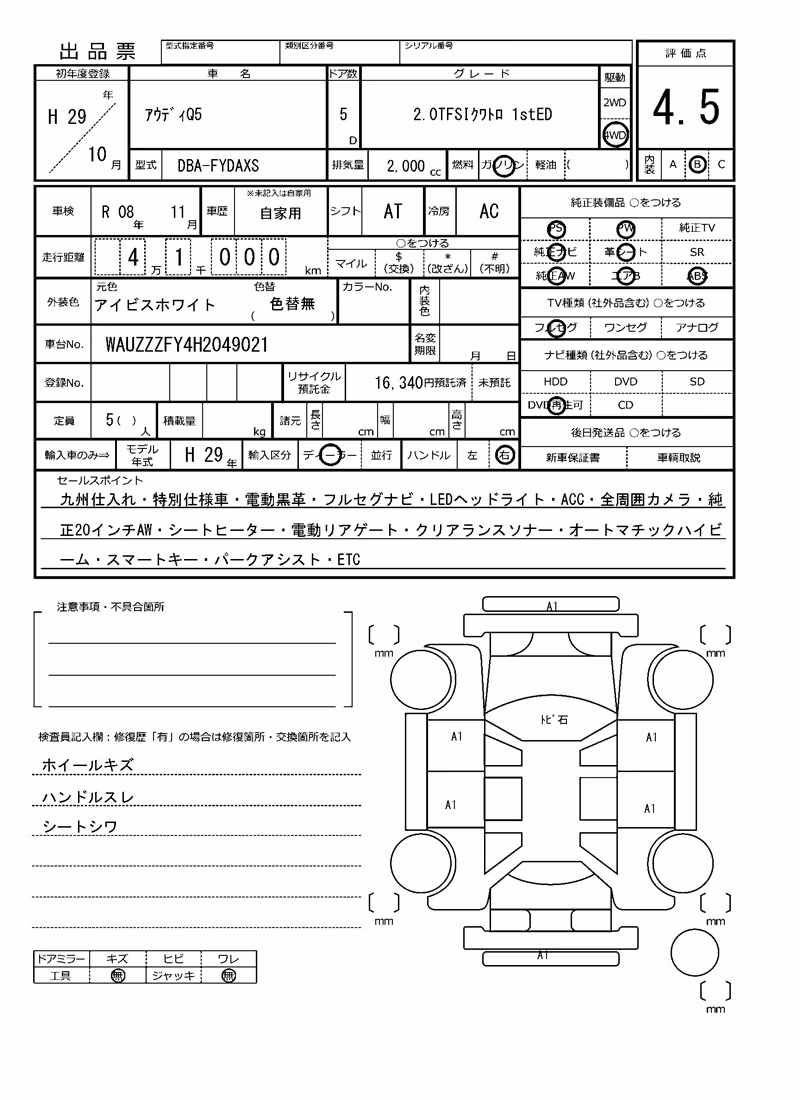 出品票
型式指定番号 類別区分番号 シリアル番号
評価点
4.5
初年度登録 車名 ドア数 グレード 駆動
H 29 年 10 月
アウディQ5
5 D
2.0TFSIクワトロ 1stED
2WD
4WD
型式 DBA-FYDAXS 排気量 2,000 cc 燃料 ガソリン 軽油 ( )
内装 A B C
車検 R 08 年 11 月 車歴 ※未記入は自家用 自家用 シフト AT 冷房 AC
走行距離 4 万 1 千 0 0 0 km
○をつける
マイル $(交換) *(改ざん) #(不明)
外装色 元色 アイビスホワイト 色替 ( 色替無 ) カラーNo. 内装色
車台No. WAUZZZFY4H2049021 名変期限 月 日
登録No. リサイクル預託金 16,340円預託済 未預託
定員 5( )人 積載量 kg 諸元 長さ cm 幅 cm 高さ cm
輸入車のみ⇒ モデル年式 H 29 年 輸入区分 ディーラー 並行 ハンドル 左 右
純正装備品 ○をつける
PS PW 純正TV
純正ナビ 革シート SR
純正AW エアB ABS
TV種類(社外品含む)○をつける
フルセグ ワンセグ アナログ
ナビ種類(社外品含む)○をつける
HDD DVD SD
DVD再生可 CD
後日発送品 ○をつける
新車保証書 車輌取説
セールスポイント
九州仕入れ・特別仕様車・電動黒革・フルセグナビ・LEDヘッドライト・ACC・全周囲カメラ・純
正20インチAW・シートヒーター・電動リアゲート・クリアランスソナー・オートマチックハイビ
ーム・スマートキー・パークアシスト・ETC
注意事項・不具合箇所
検査員記入欄:修復歴「有」の場合は修復箇所・交換箇所を記入
ホイールキズ
ハンドルスレ
シートシワ
ドアミラー キズ ヒビ ワレ
工具 無 ジャッキ 無
A1
mm mm
トビ石
A1 A1
A1 A1
mm mm
A1
mm